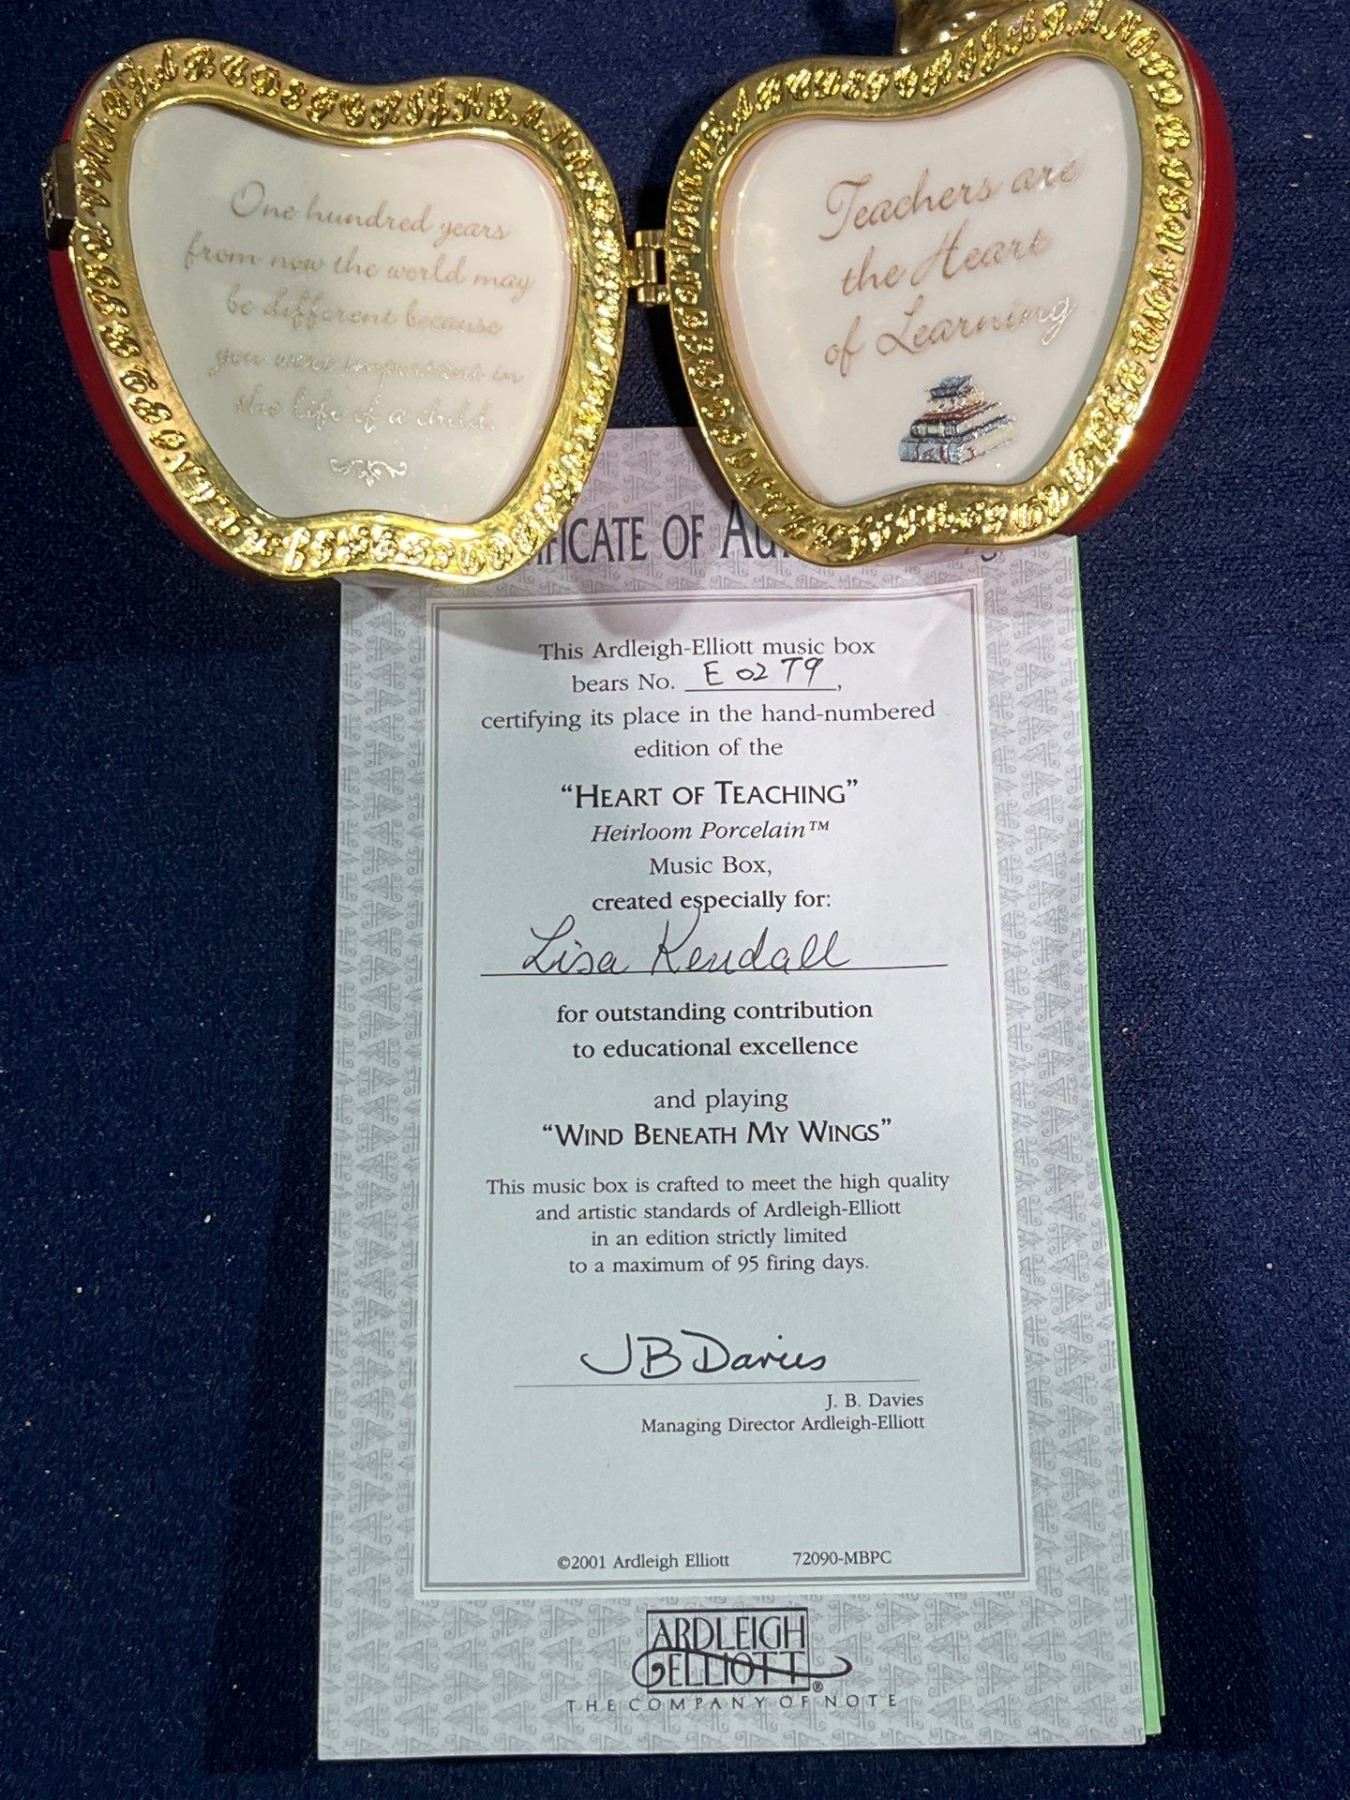 One hundred years
from now the world may
be different because
you were important in
the life of a child.
Teachers are
the Heart
of Learning
FICATE OF AU
This Ardleigh-Elliott music box
bears No. E 02 T9,
certifying its place in the hand-numbered
edition of the
“HEART OF TEACHING”
Heirloom Porcelain™
Music Box,
created especially for:
Lisa Kendall
for outstanding contribution
to educational excellence
and playing
“WIND BENEATH MY WINGS”
This music box is crafted to meet the high quality
and artistic standards of Ardleigh-Elliott
in an edition strictly limited
to a maximum of 95 firing days.
JB Davies
J. B. Davies
Managing Director Ardleigh-Elliott
©2001 Ardleigh Elliott 72090-MBPC
ARDLEIGH
ELLIOTT®
THE COMPANY OF NOTE